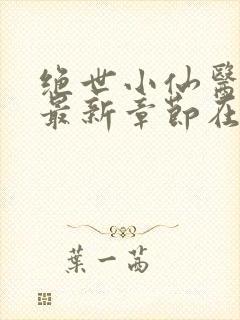 绝世小仙醫
最新章節在
葉一茜